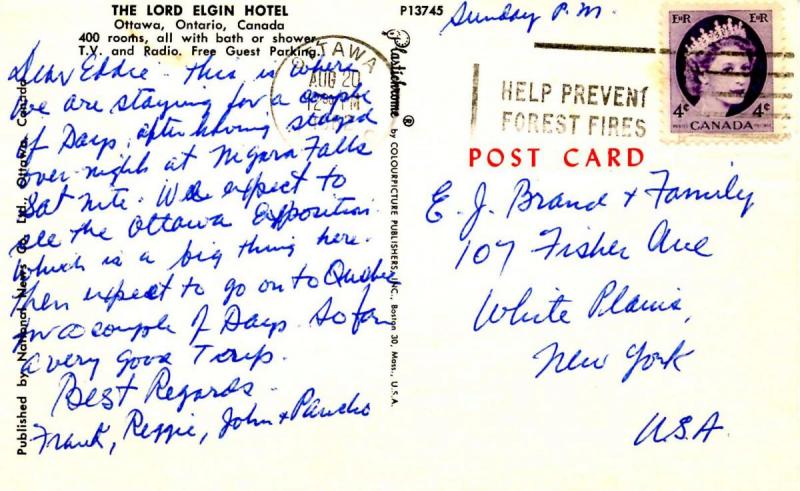 THE LORD ELGIN HOTEL
Ottawa, Ontario, Canada
400 rooms, all with bath or shower,
T.V. and Radio. Free Guest Parking.
Dear Eddie - This is where
we are staying for a couple
of Days, after having stayed
over night at Niagara Falls
Sat nite. We expect to
see the Ottawa Exposition
which is a big thing here.
Then expect to go on to Quebec
in a couple of Days. So far
a very good Trip.
Best Regards
Frank, Reggie, John & Pancho
Published by National News Co. Ltd., Ottawa, Canada
Plastichrome ® by COLOURPICTURE PUBLISHERS, INC., Boston 30, Mass., U.S.A.
P13745
Sunday P.M.
OTTAWA
AUG 20
HELP PREVENT
FOREST FIRES
EIIR EIIR
4¢ 4¢
CANADA
POST CARD
E. J. Brand & Family
107 Fisher Ave
White Plains,
New York
U.S.A.